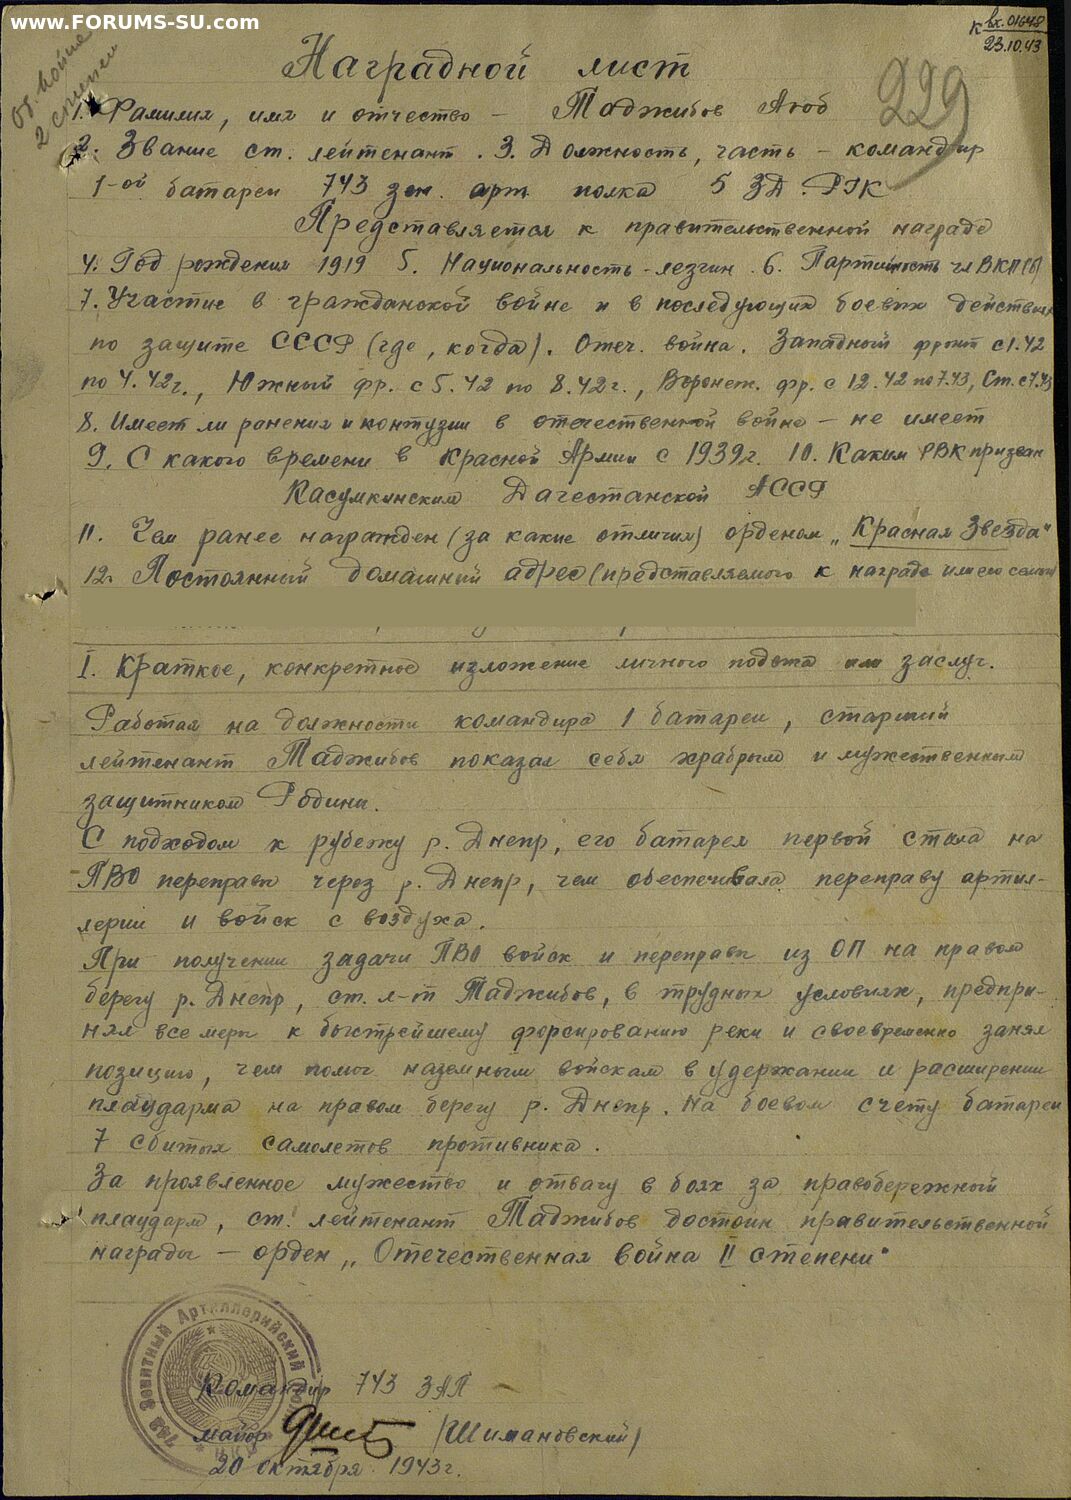 www.FORUMS-SU.com
к вх. 01648
23.10.43
От. войне
2 степен
229
Наградной лист
1. Фамилия, имя и отчество – Таджибов Аюб
2. Звание ст. лейтенант. 3. Должность, часть – командир
1-ой батареи 743 зен. арт. полка 5 ЗД. РГК
Представляется к правительственной награде
4. Год рождения 1919 5. Национальность - лезгин. 6. Партийность чл ВКП(б)
7. Участие в гражданской войне и в последующих боевых действиях
по защите СССР (где, когда). Отеч. война. Западный фронт с 1.42
по 4.42г., Южный фр. с 5.42 по 8.42г., Воронеж. фр. с 12.42 по 7.43, Ст. с 7.43
8. Имеет ли ранения и контузии в отечественной войне – не имеет
9. С какого времени в Красной Армии с 1939г. 10. Каким РВК призван
Касумкинским Дагестанской АССР
11. Чем ранее награжден (за какие отличия) орденом „Красная Звезда"
12. Постоянный домашний адрес (представляемого к награде или его семьи)
I. Краткое, конкретное изложение личного подвига или заслуг.
Работая на должности командира 1 батареи, старший
лейтенант Таджибов показал себя храбрым и мужественным
защитником Родины.
С подходом к рубежу р. Днепр, его батарея первой стала на
ПВО переправы через р. Днепр, чем обеспечивала переправу артил-
лерии и войск с воздуха.
При получении задачи ПВО войск и переправы из ОП на правом
берегу р. Днепр, ст. л-т Таджибов, в трудных условиях, предпри-
нял все меры к быстрейшему форсированию реки и своевременно занял
позицию, чем помог наземным войскам в удержании и расширении
плаударма на правом берегу р. Днепр. На боевом счету батареи
7 сбитых самолетов противника.
За проявленное мужество и отвагу в боях за правобережный
плаударм, ст. лейтенант Таджибов достоин правительственной
награды – орден „Отечественная война II степени"
743 Зенитный Артиллерийский
НКО
Командир 743 ЗАП
майор (Шимановский)
20 октября 1943г.